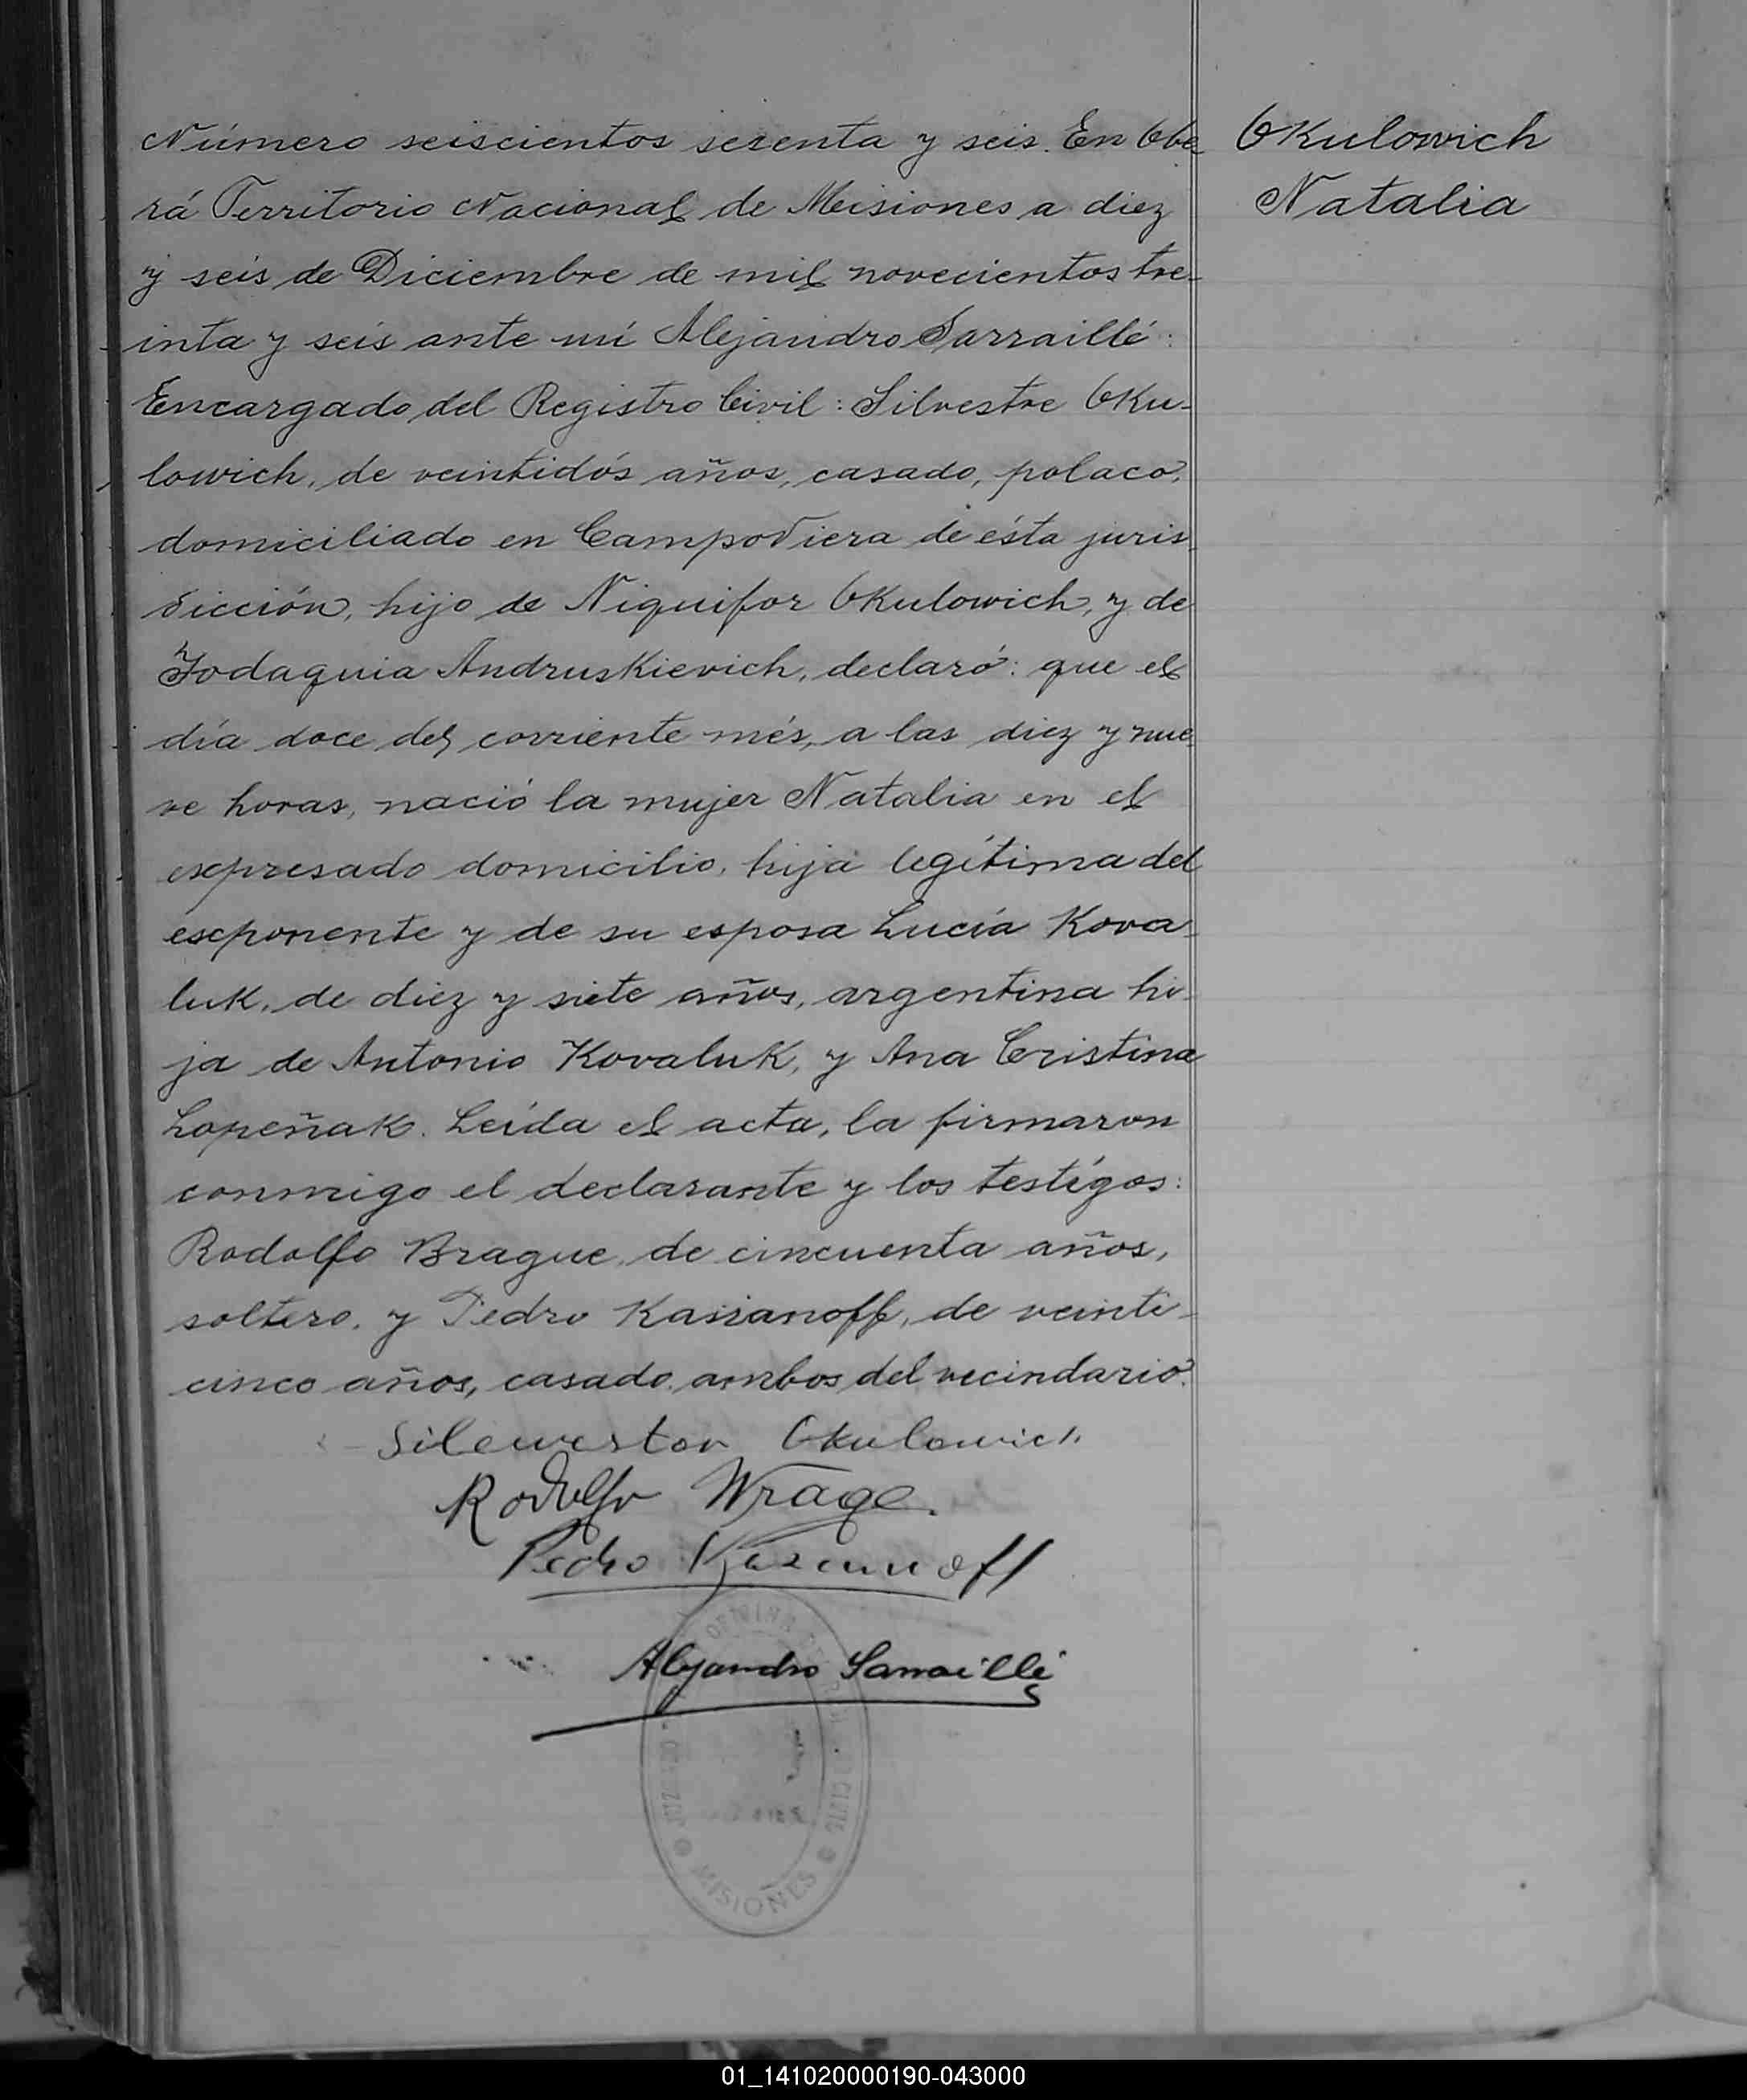 Número seiscientos sesenta y seis. En Obe-
rá Territorio Nacional de Misiones a diez
y seis de Diciembre de mil novecientos tre-
inta y seis ante mí Alejandro Sarraillé:
Encargado del Registro Civil: Silvestre Oku-
lowich, de veintidós años, casado, polaco,
domiciliado en Campo Viera de ésta juris-
dicción, hijo de Niquifor Okulowich, y de
Fodaquia Andruskievich, declaró: que el
día doce del corriente més, a las diez y nue-
ve horas, nació la mujer Natalia en el
expresado domicilio, hija legítima del
exponente y de su esposa Lucía Kova-
luk, de diez y siete años, argentina hi-
ja de Antonio Kovaluk, y Ana Cristina
Lopeñak. Leída el acta, la firmaron
conmigo el declarante y los testigos:
Rodolfo Brague, de cincuenta años,
soltero, y Pedro Kasianoff, de veinti-
cinco años, casado, ambos del vecindario.
Okulowich
Natalia
Silewestor Okulowich
Rodolfo Wrage.
Pedro Kasianoff
Alejandro Sarraillé
MISIONES
01_141020000190-043000